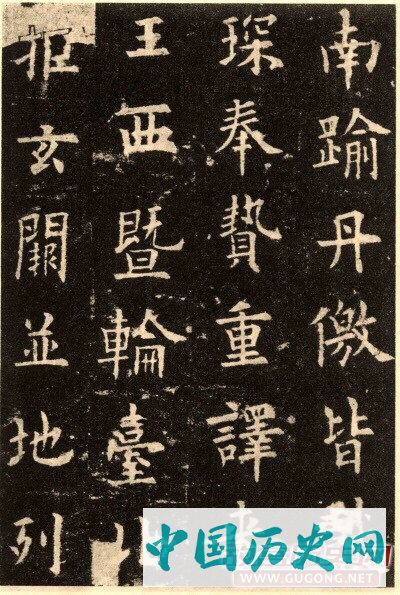 南踰丹徼皆
琛奉贄重譯
王西暨輪臺
拒玄闕並地列
中国历史网
WWW.GUGONG.NET